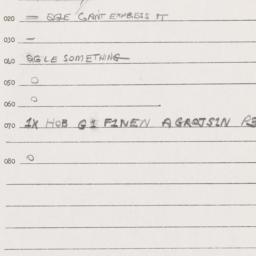 020 = EGLE CAN'T EXPRESS IT
030 –
040 EGLE SOMETHING
050 O
060 O
070 IX HOB GIFINEN A GROISIN
080 O